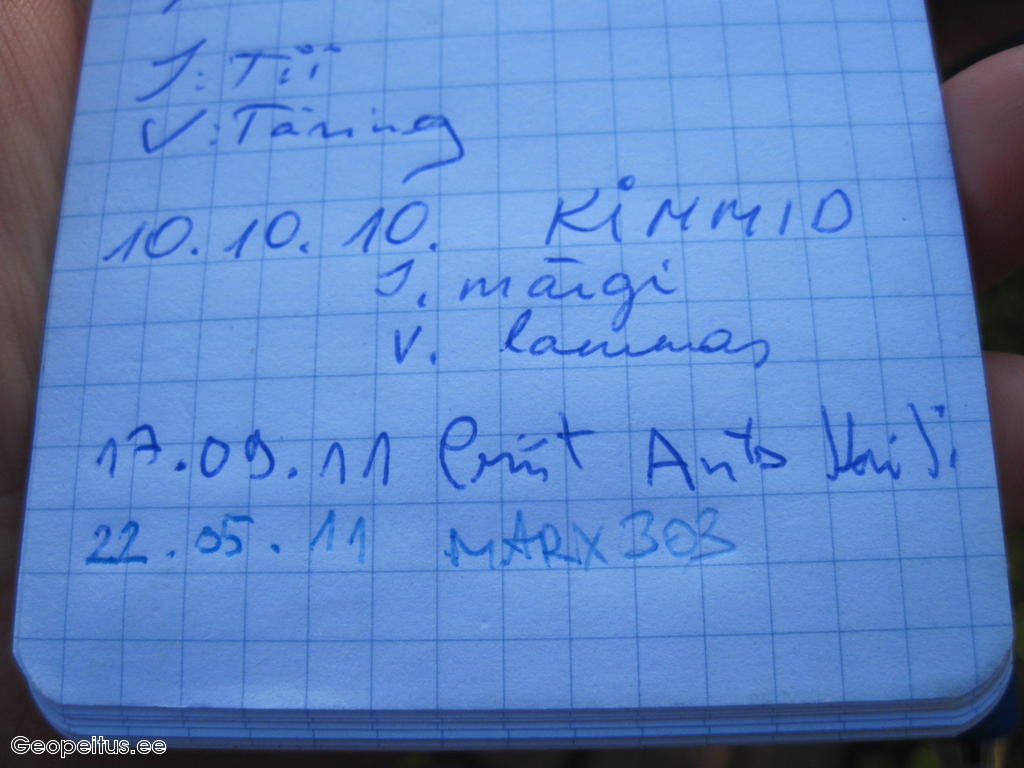 J: Tii
V: Täring
10.10.10. KIMMID
J. märgi
V. lammas
17.09.11 Priit Ants
22.05.11 MARX303
Geopeitus.ee